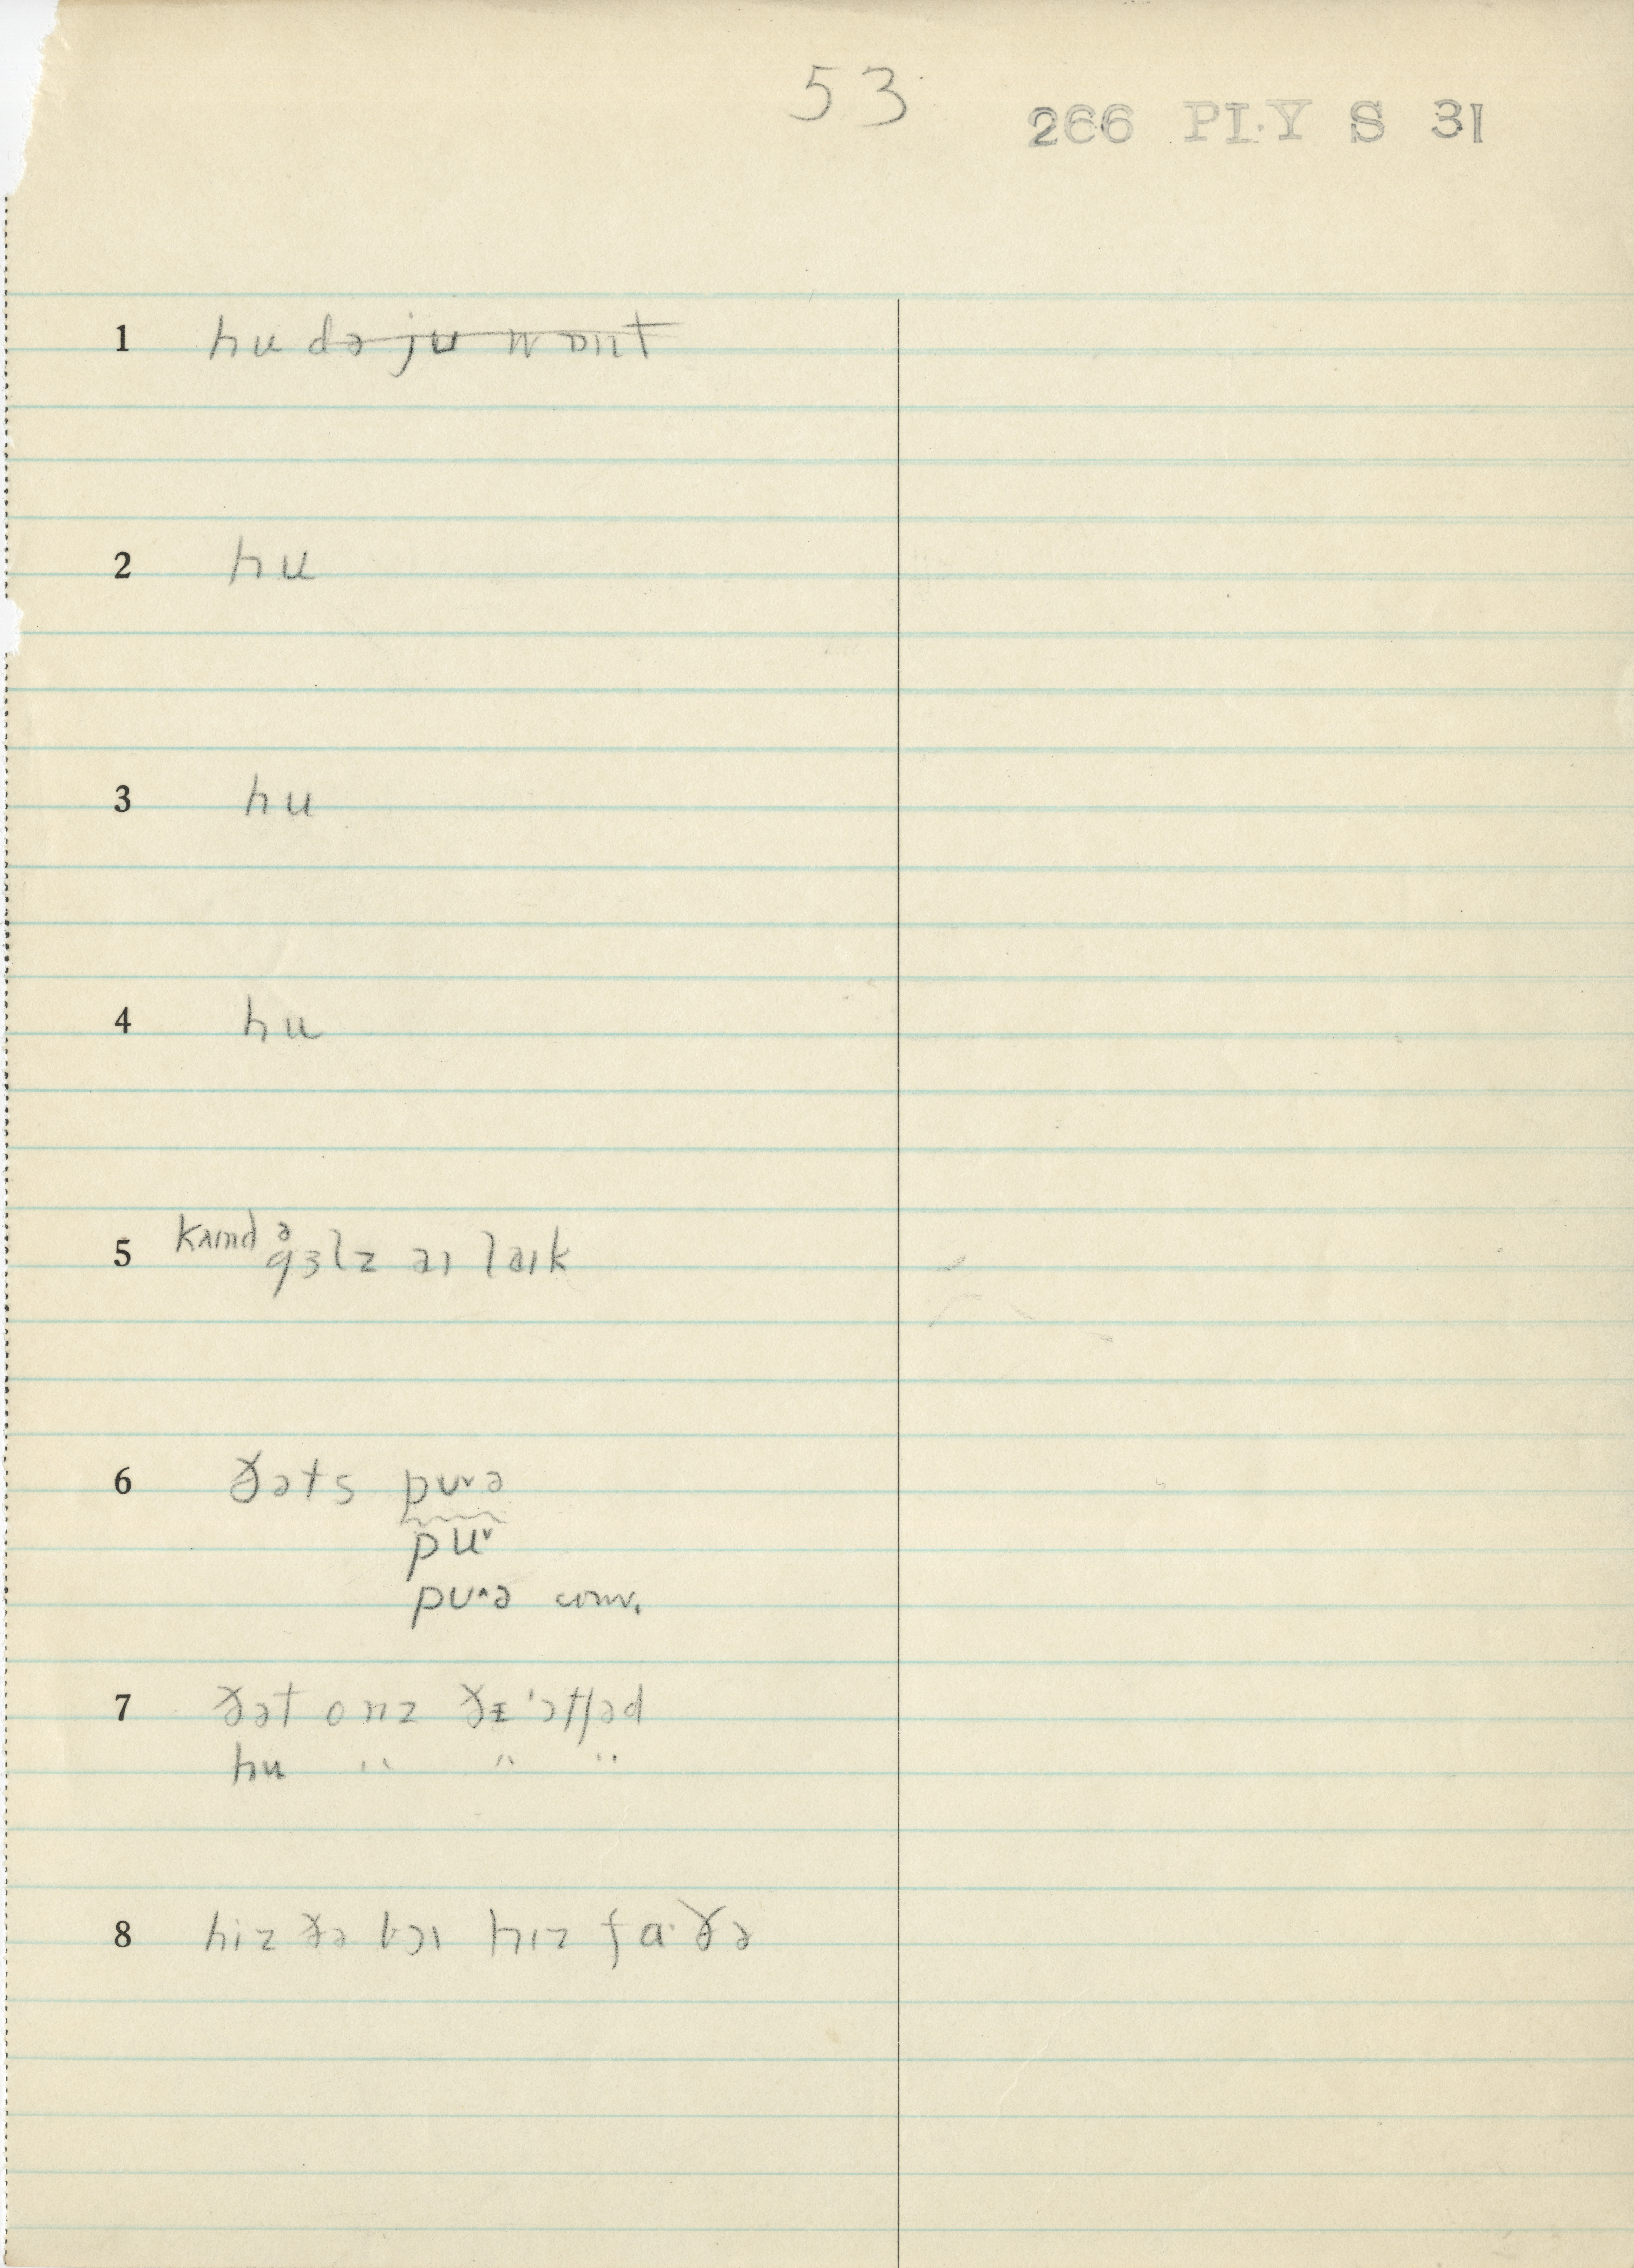 53
266 PLY S 31
1 hu də ju wɒnt
2 hu
3 hu
4 hu
5 kaɪnd ə
gɜlz aɪ laɪk
6 ðəts pʊ˅ə
pu˅
pʊ^ə conv.
7 ðət onz ðɪ 'ɔtʃəd
hu " " "
8 hiz ðə bɔɪ hɪz fa·ðə